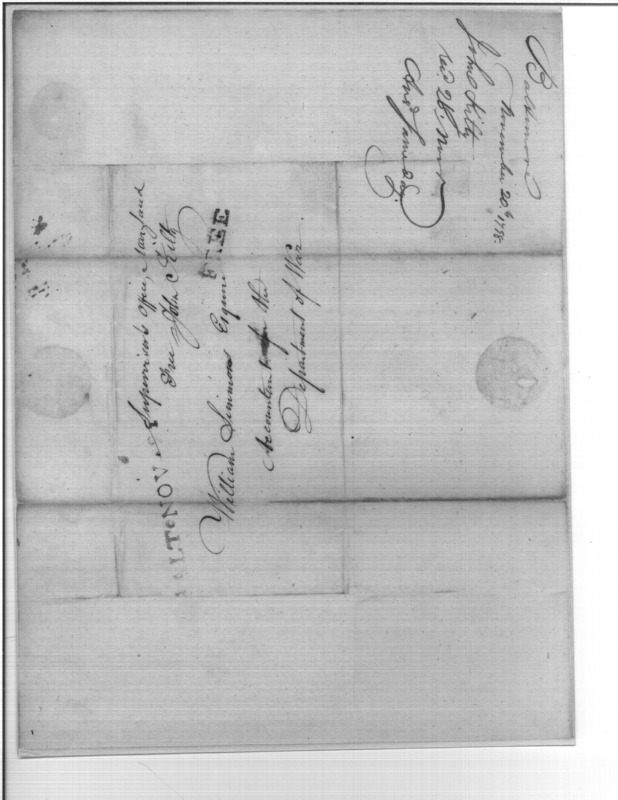 Baltimore
November 20th, 1798.
John Kilty
recd 28. Nov
Ansd same day.
Supervisor's Office, Maryland
Free John Kilty
FREE
William Simmons Esquire
Accountant for the
Department of War.
BALT NOV